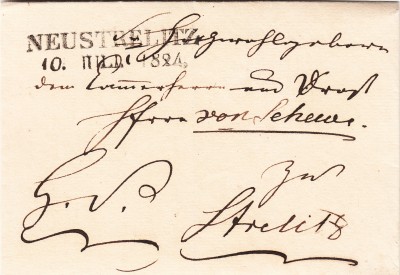 NEUSTRELITZ
10. 1824.
Hochwohlgeboren
dem Cammerherrn und Drost
Herrn von Scheve.
H. S. zu
Strelitz